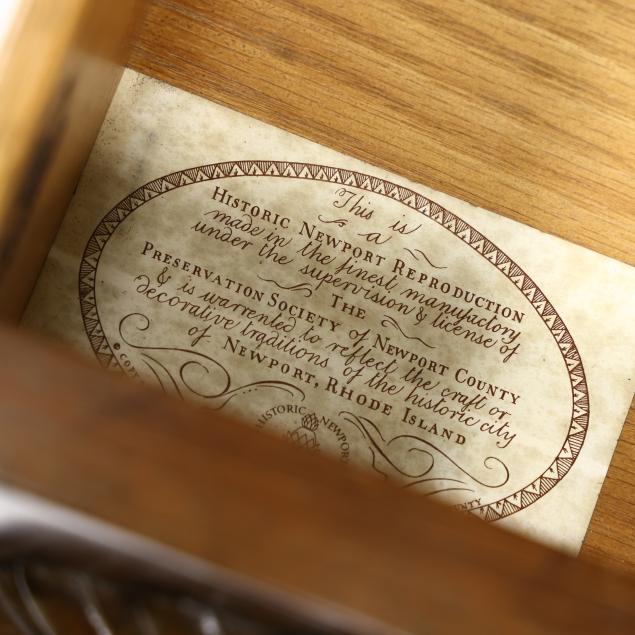 This is
a
HISTORIC NEWPORT REPRODUCTION
made in the finest manufactory
under the supervision & license of
THE
PRESERVATION SOCIETY of NEWPORT COUNTY
& is warrented to reflect the craft or
decorative traditions of the historic city
of NEWPORT, RHODE ISLAND
HISTORIC NEWPORT